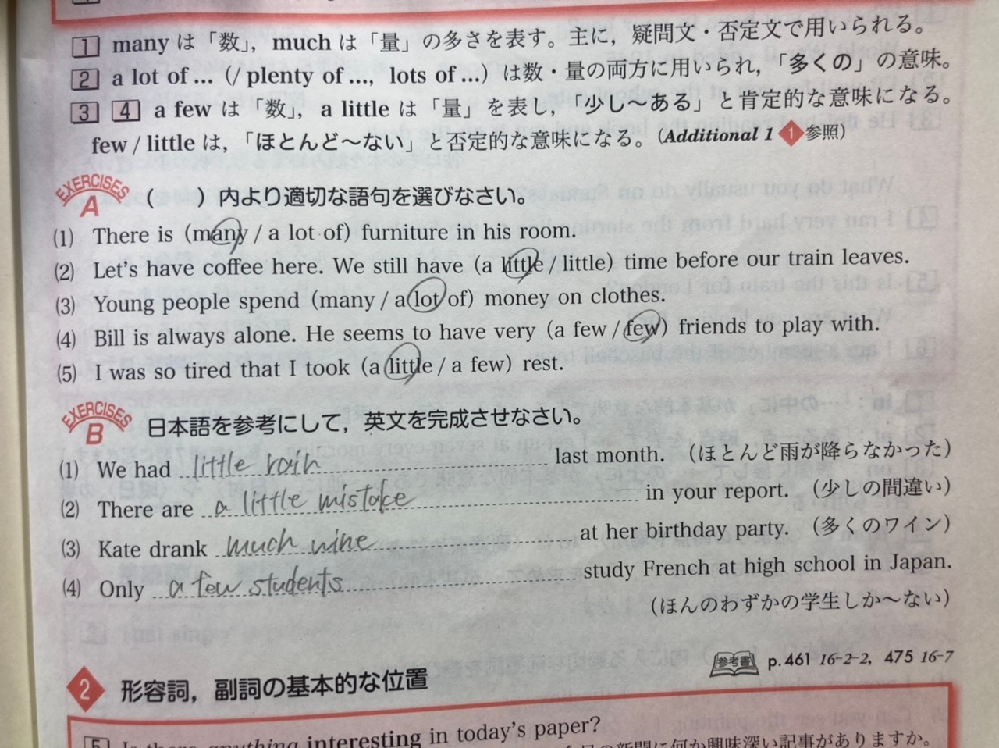 1 many は「数」，much は「量」の多さを表す。主に，疑問文・否定文で用いられる。
2 a lot of ...（/ plenty of ..., lots of ...）は数・量の両方に用いられ，「多くの」の意味。
3 4 a few は「数」，a little は「量」を表し，「少し～ある」と肯定的な意味になる。
few / little は，「ほとんど～ない」と否定的な意味になる。（Additional 1 1 参照）
EXERCISES A （　　）内より適切な語句を選びなさい。
(1) There is (many / a lot of) furniture in his room.
(2) Let's have coffee here. We still have (a little / little) time before our train leaves.
(3) Young people spend (many / a lot of) money on clothes.
(4) Bill is always alone. He seems to have very (a few / few) friends to play with.
(5) I was so tired that I took (a little / a few) rest.
EXERCISES B 日本語を参考にして，英文を完成させなさい。
(1) We had little rain last month. （ほとんど雨が降らなかった）
(2) There are a little mistake in your report. （少しの間違い）
(3) Kate drank much wine at her birthday party. （多くのワイン）
(4) Only a few students study French at high school in Japan.
（ほんのわずかの学生しか～ない）
参考書 p.461 16-2-2, 475 16-7
2 形容詞，副詞の基本的な位置
5 Is there anything interesting in today's paper?
新聞に何か興味深い記事がありますか。